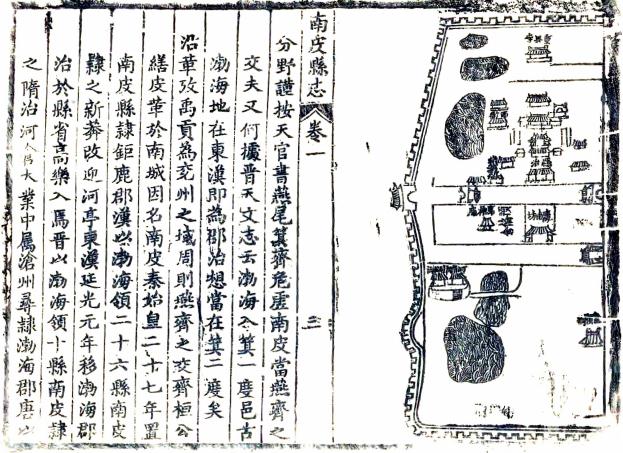 南皮縣志
卷一
三
分野謹按天官書燕尾箕齊危虛南皮當燕齊之
交夫又何據晉天文志云渤海入箕一度邑古
渤海地在東漢即為郡治想當在箕二度矣
沿革攷禹貢為兗州之域周則燕齊之交齊桓公
繕皮革於南城因名南皮秦始皇二十七年置
南皮縣隷鉅鹿郡漢以渤海領二十六縣南皮
隷之新莽改迎河亭東漢延光元年移渤海郡
治於縣省高樂入焉晉以渤海領十縣南皮隷
之隋治河大業中属滄州尋隷渤海郡唐以